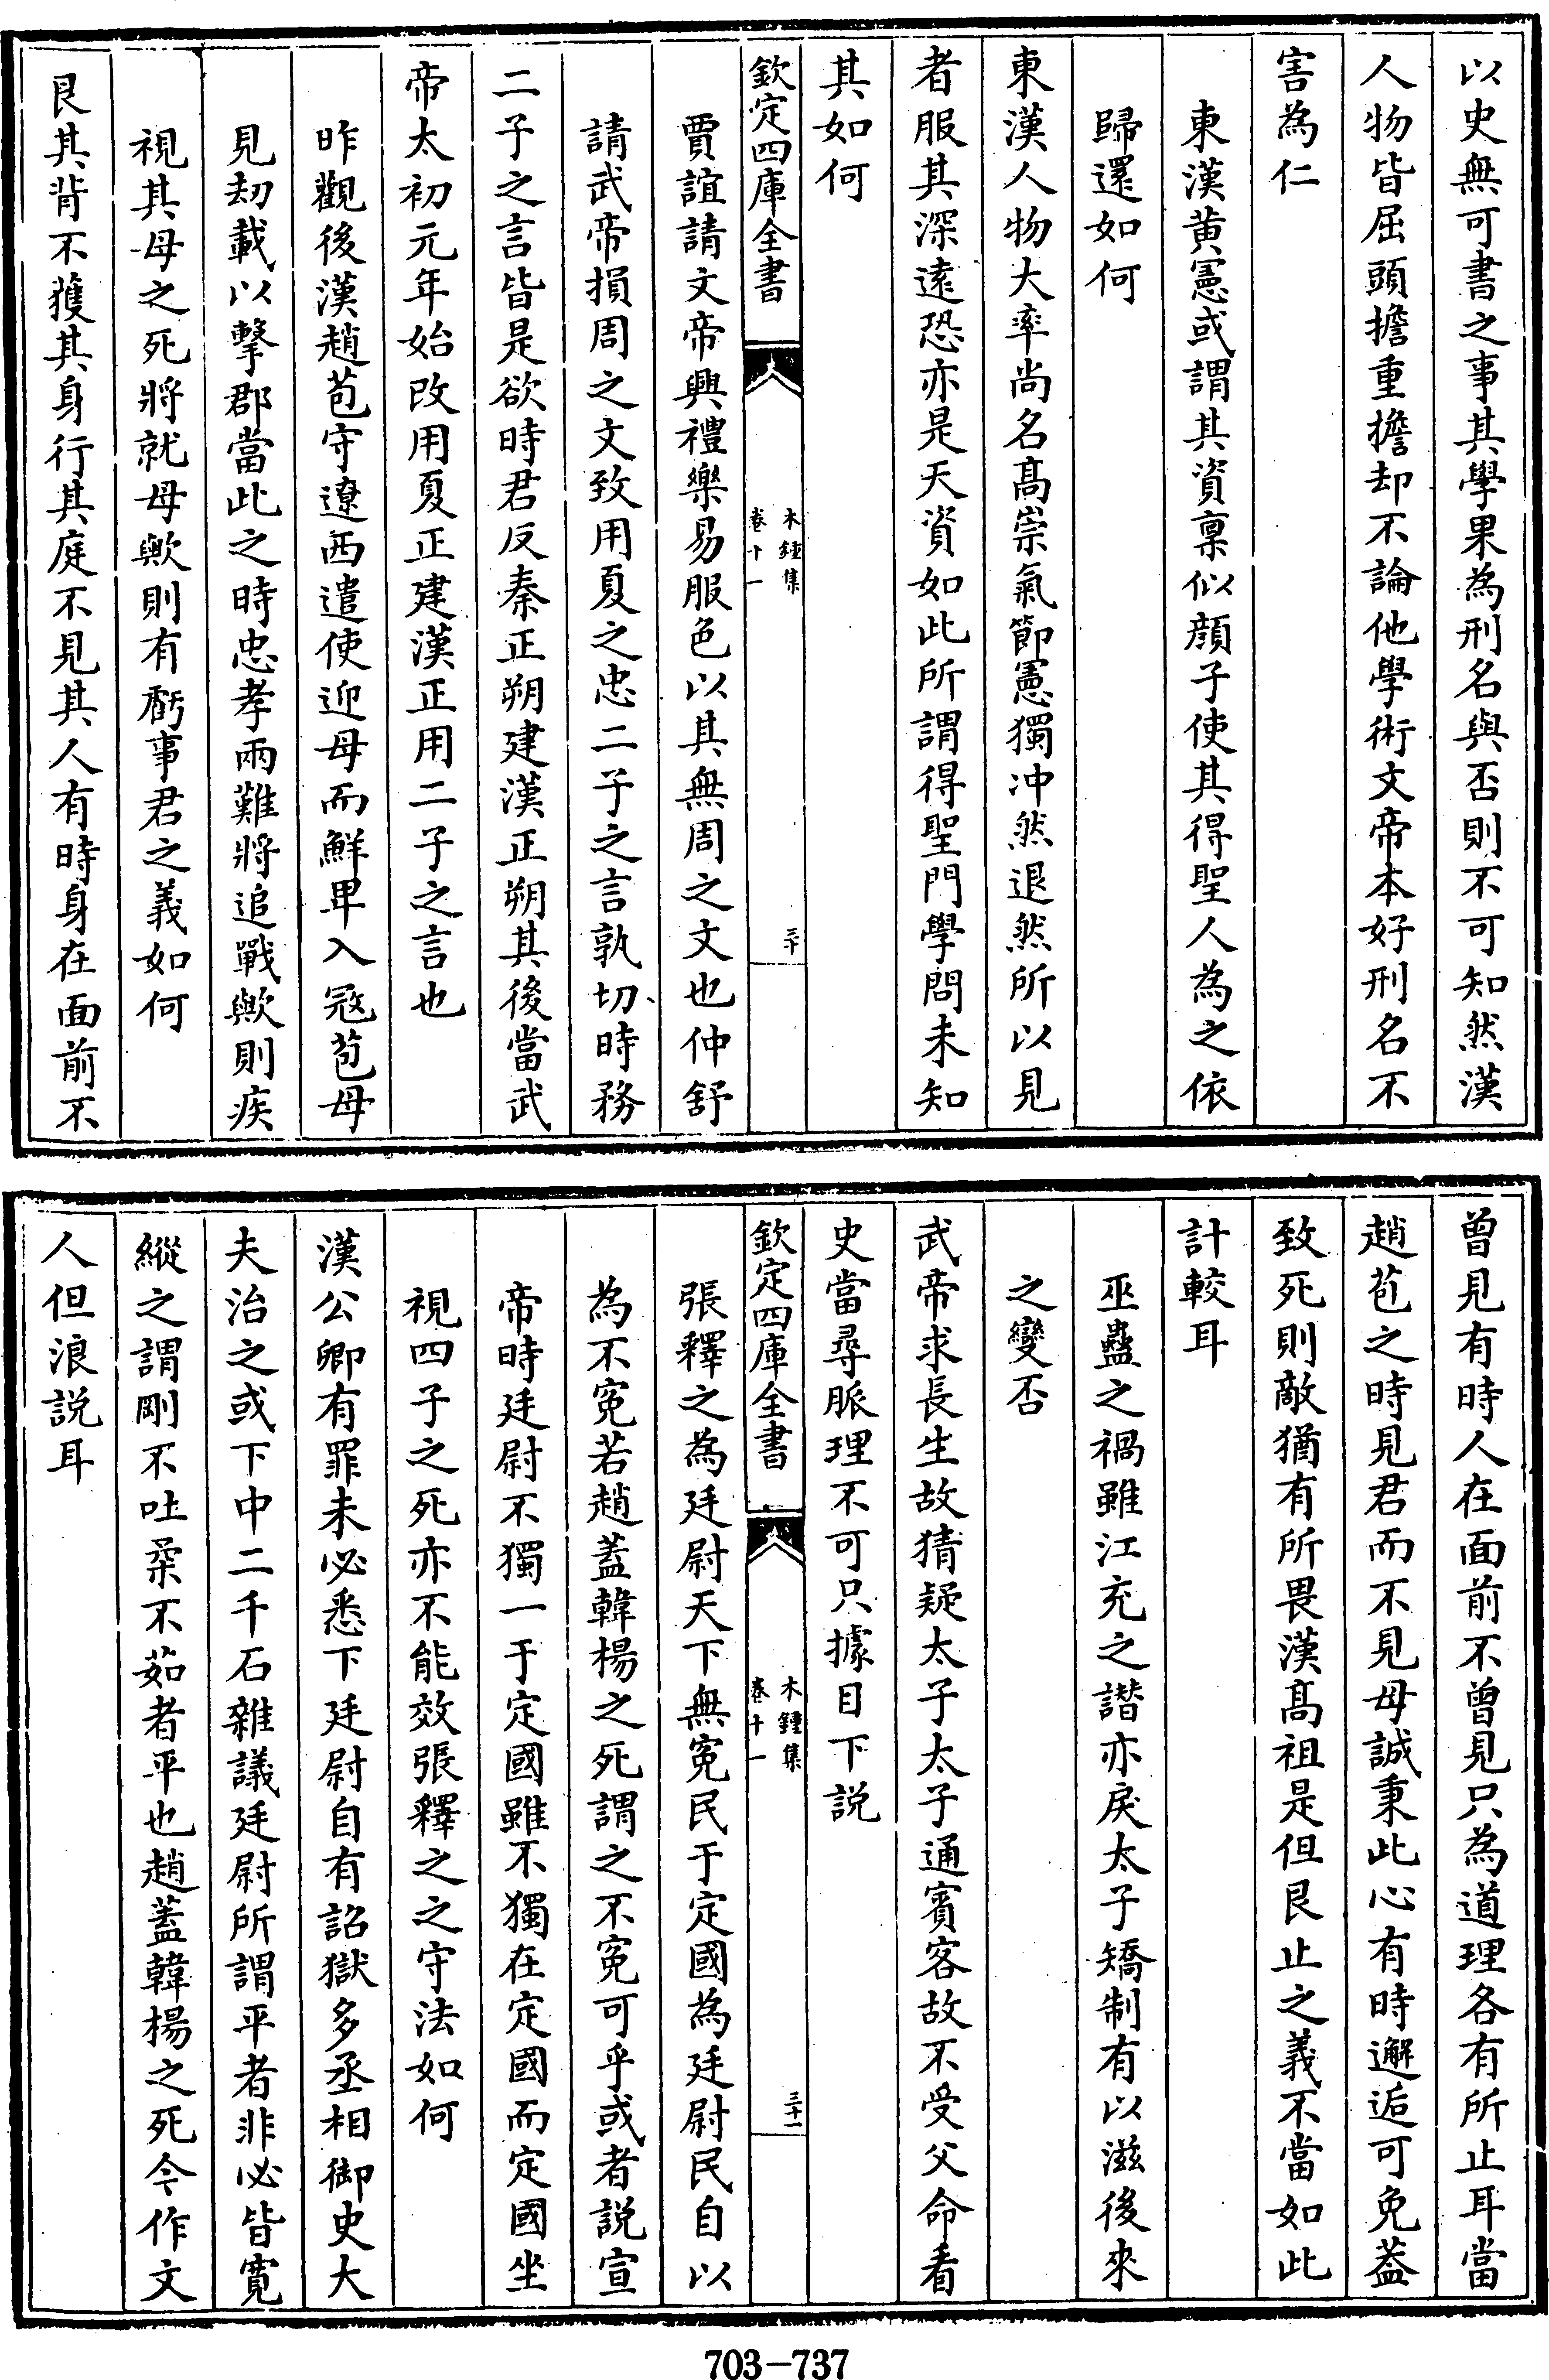 以史無可書之事其學果為刑名與否則不可知然漢
人物皆屈頭擔重擔却不論他學術文帝本好刑名不
害為仁
東漢黄憲或謂其資稟似顔子使其得聖人為之依
歸還如何
東漢人物大率尚名髙崇氣節憲獨冲然退然所以見
者服其深逺恐亦是天資如此所謂得聖門學問未知
其如何
欽定四庫全書
木鍾集
卷十一
三十
賈誼請文帝興禮樂易服色以其無周之文也仲舒
請武帝損周之文致用夏之忠二子之言孰切時務
二子之言皆是欲時君反秦正朔建漢正朔其後當武
帝太初元年始改用夏正建漢正用二子之言也
昨觀後漢趙苞守遼西遣使迎母而鮮卑入冦苞母
見刼載以擊郡當此之時忠孝兩難將追戰歟則疾
視其母之死將就母歟則有虧事君之義如何
艮其背不獲其身行其庭不見其人有時身在面前不
曾見有時人在面前不曾見只為道理各有所止耳當
趙苞之時見君而不見母誠秉此心有時邂逅可免葢
致死則敵猶有所畏漢髙祖是但艮止之義不當如此
計較耳
巫蠱之禍雖江充之譖亦戾太子矯制有以滋後來
之變否
武帝求長生故猜疑太子太子通賓客故不受父命看
史當尋脈理不可只據目下説
欽定四庫全書
木鍾集
卷十一
三十一
張釋之為廷尉天下無寃民于定國為廷尉民自以
為不寃若趙蓋韓楊之死謂之不寃可乎或者説宣
帝時廷尉不獨一于定國雖不獨在定國而定國坐
視四子之死亦不能效張釋之之守法如何
漢公卿有罪未必悉下廷尉自有詔獄多丞相御史大
夫治之或下中二千石雜議廷尉所謂平者非必皆寛
縱之謂剛不吐柔不茹者平也趙蓋韓楊之死今作文
人但浪説耳
703-737